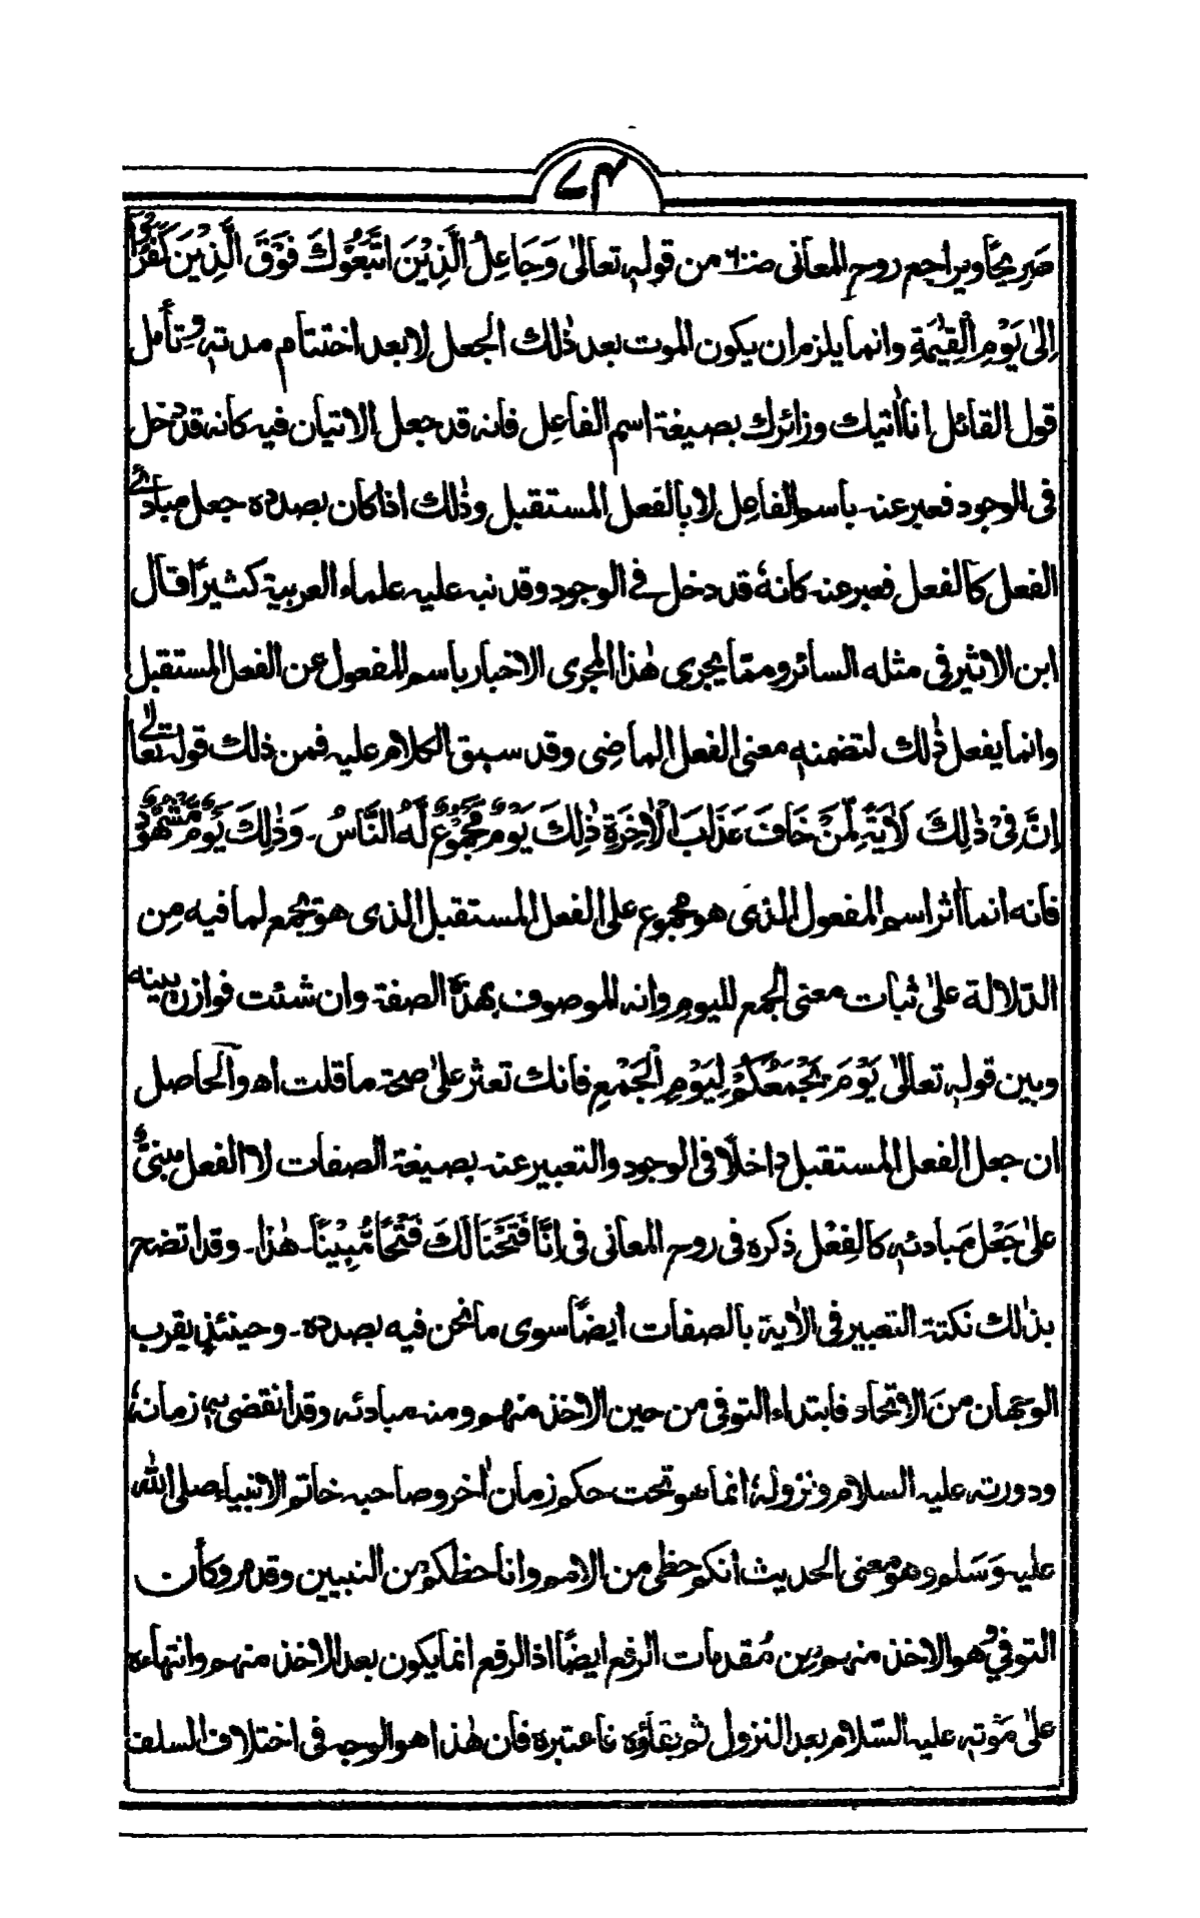 ۷۴
صَرِيحًا ويراجع روح المعانى من قولہٖ تعالىٰ وَجَاعِلُ الَّذِيْنَ اتَّبَعُوْكَ فَوْقَ الَّذِيْنَ كَفَرُوْا
اِلىٰ يَوْمِ الْقِيٰمَةِ وانما يلزم ان يكون الموت بعد ذٰلك الجعل لا بعد اختتام مدتہٖ وتأمل
قول القائل انا اٰتيك وزائرك بصيغة اسم الفاعل فانه قد جعل الاتيان فيه كانه قد دخل
فى الوجود فعبر عنه باسم الفاعل لا بالفعل المستقبل وذٰلك اذا كان بصدده جعل مبادئ
الفعل كالفعل فعبر عنه كانهٗ قد دخل فے الوجود وقد نبه عليه علماء العربية كثيرًا قال
ابن الاثير فى مثله السائر ومما يجرى هٰذا المجرى الاخبار باسم المفعول عن الفعل المستقبل
وانما يفعل ذٰلك لتضمنہٖ معنى الفعل الماضى وقد سبق الكلام عليه فمن ذلك قوله تعالىٰ
اِنَّ فِىْ ذٰلِكَ لَاٰيَةً لِّمَنْ خَافَ عَذَابَ الْاٰخِرَةِ ذٰلِكَ يَوْمٌ مَّجْمُوْعٌ لَّهُ النَّاسُ۔ وَذٰلِكَ يَوْمٌ مَّشْهُوْدٌ
فانه انما اٰثر اسم المفعول الذى هو مجموع على الفعل المستقبل الذى هو يجمع لما فيه مِن
الدلالة علىٰ ثبات معنى الجمع لليوم وانه الموصوف بهذه الصفة وان شئت فوازن بينه
وبين قولہٖ تعالىٰ يَوْمَ يَجْمَعُكُمْ لِيَوْمِ الْجَمْعِ فانك تعثر علىٰ صحة ما قلت اھ والحاصل
ان جعل الفعل المستقبل داخلًا فى الوجود والتعبير عنه بصيغة الصفات لا الفعل مبنىٌّ
علىٰ جَعْل مَبادئہٖ كالفِعْل ذكره فى روح المعانى فى اِنَّا فَتَحْنَا لَكَ فَتْحًا مُّبِيْنًا۔ هٰذا۔ وقد اتضح
بذٰلك نكتة التعبير فى الاٰية بالصفات ايضًا سوى ما نحن فيه بصدده۔ وحينئذٍ يقرب
الوجهان منَ الاتحاد فابتداء التوفى من حين الاخذ منهم ومنه مبادئه وقد انقضى بہٖ زمانهٗ
ودورته عليه السلام ونزولهٗ انما هو تحت حكم زمان اٰخر وصاحبه خاتم الانبياء صلى اللّٰه
عليه وَسَلم وهو معنى الحديث انكم حظى من الامم وانا حظكم من النبيين وقد مر وكأن
التوفىَ وهو الاخذ منهم مِن مُقدمات الرفع ايضًا اذ الرفع انما يكون بعد الاخذ منهم وانتهاءه
علىٰ مَوتہٖ عليه السّلام بعد النزول ثم بقاؤه فاعتبره فان هٰذا هو الوجه فى اختلاف السلف